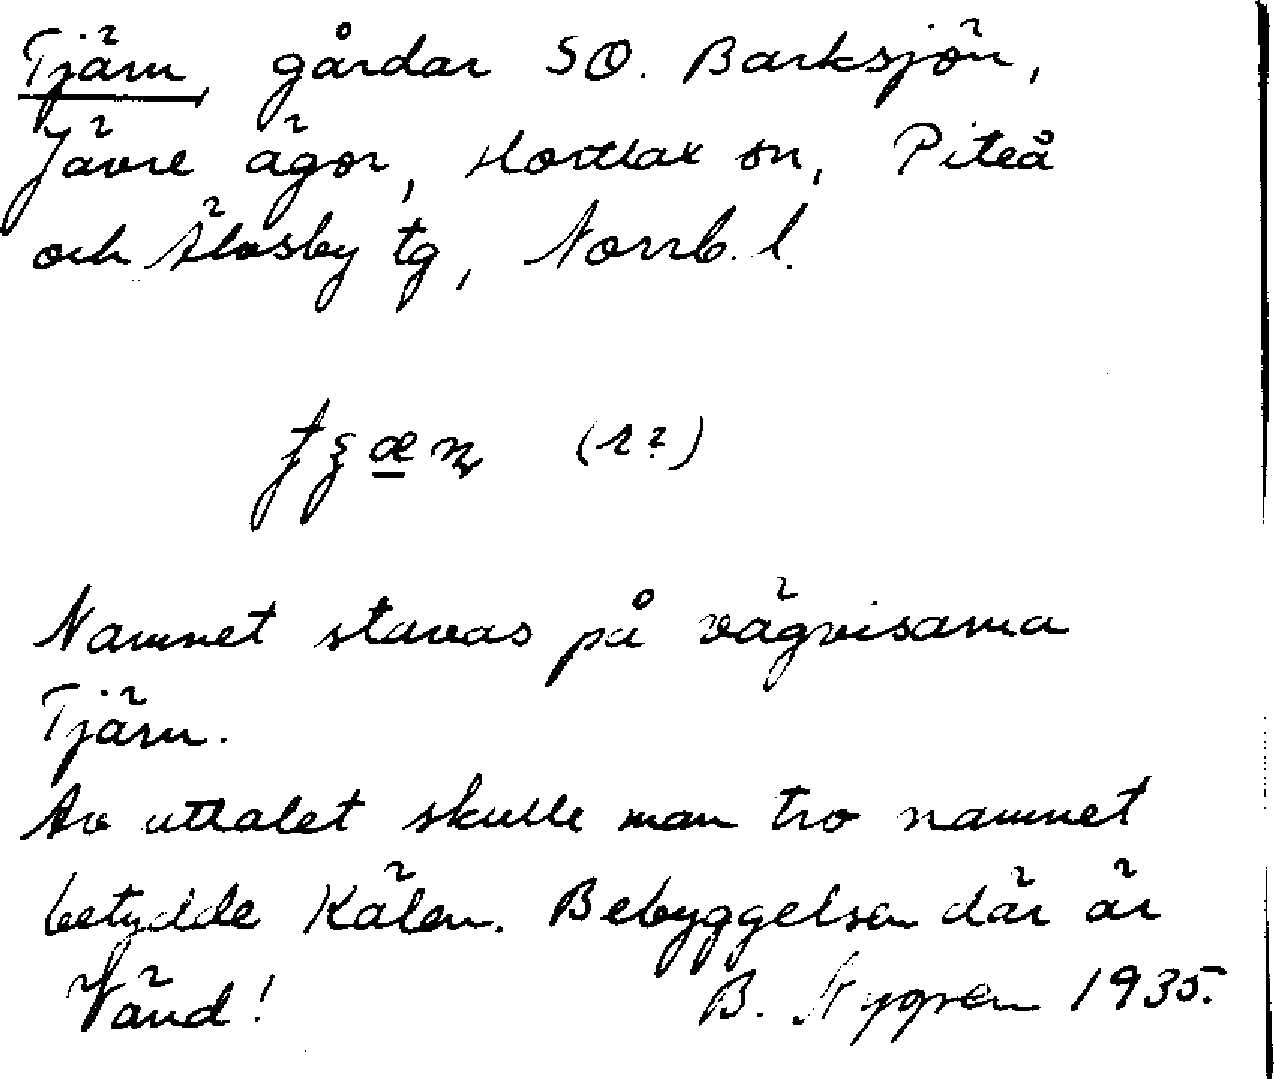 Tjärn, gårdar SO. Barksjön,
Jävre ägor, Hortlax sn, Piteå
och Älvsby tg, Norrb. l.
(r?)
Namnet stavas på vägvisarna
Tjärn.
Av uttalet skulle man tro namnet
betydde Kälen. Bebyggelsen där är
Vänd! B. Nygren 1935.